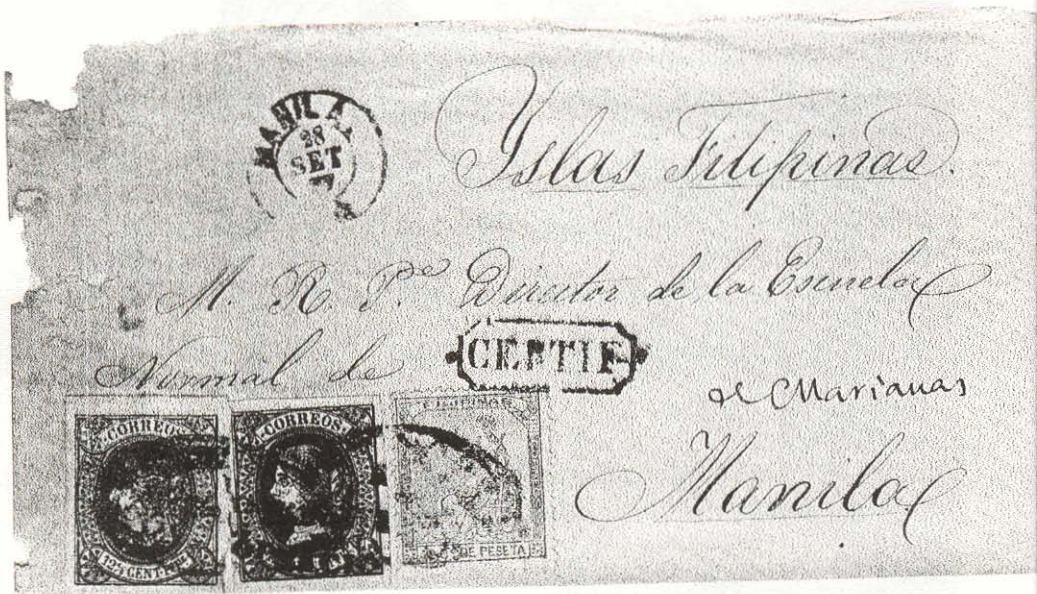 MANILA
28
SET
Yslas Filipinas.
M. R. P.e Director de la Escuela
Normal de
CERTIF
de Marianas
Manila
CORREOS
CORREOS
FILIPINAS
DE PESETA